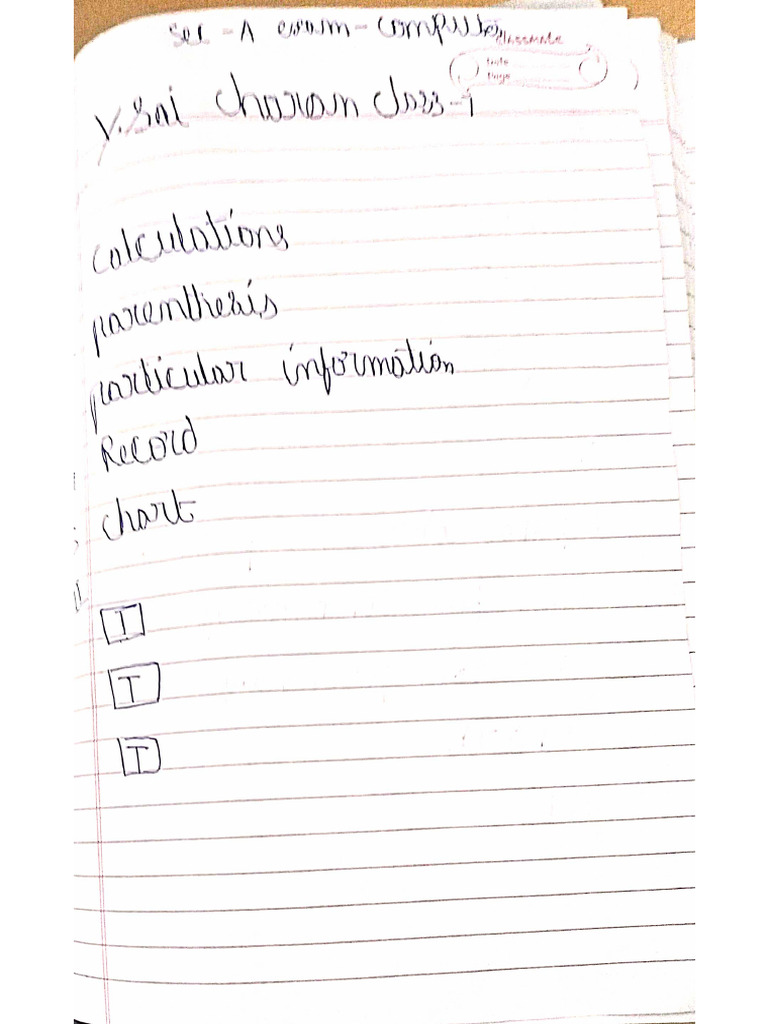 Sec - A exam - computer
classmate
Date
Page
Y. Sai Charan class-7
calculations
parenthesis
particular information
Record
chart
T
T
T